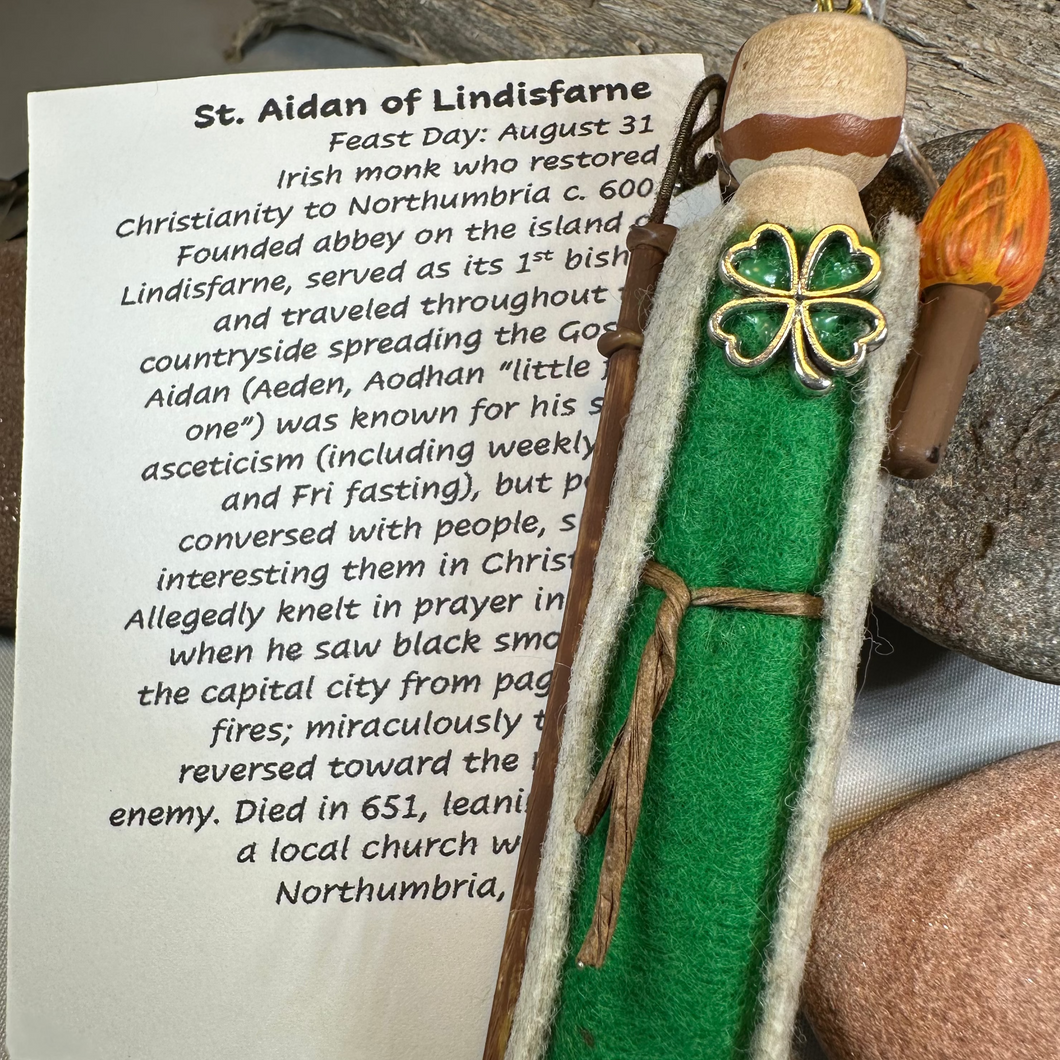 St. Aidan of Lindisfarne
Feast Day: August 31
Irish monk who restored
Christianity to Northumbria c. 600
Founded abbey on the island
Lindisfarne, served as its 1st
and traveled throughout
countryside spreading the
Aidan (Aeden, Aodhan “little
one”) was known for his
asceticism (including weekly
and Fri fasting), but
conversed with people,
interesting them in
Allegedly knelt in prayer in
when he saw black
the capital city from
fires; miraculously
reversed toward the
enemy. Died in 651,
a local church
Northumbria,